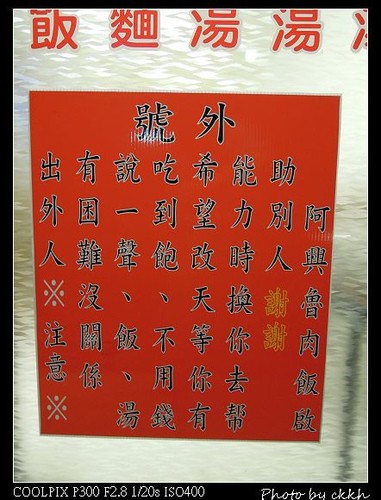 飯麵湯湯
號外
出外人※注意※
有困難沒關係
說一聲、飯、湯
吃到飽、不用錢
希望改天等你有
能力時換你去幫
助別人謝謝
阿興魯肉飯啟
COOLPIX P300 F2.8 1/20s ISO400
Photo by ckkh